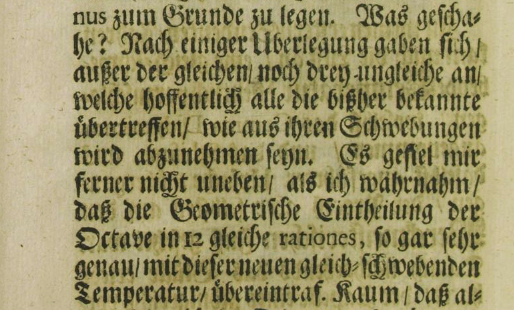 nus zum Grunde zu legen. Was gescha-
he? Nach einiger Uberlegung gaben sich/
außer der gleichen/ noch drey ungleiche an/
welche hoffentlich alle die bißher bekannte
übertreffen/ wie aus ihren Schwebungen
wird abzunehmen seyn. Es gefiel mir
ferner nicht uneben/ als ich wahrnahm/
daß die Geometrische Eintheilung der
Octave in 12 gleiche rationes, so gar sehr
genau/ mit dieser neuen gleich-schwebenden
Temperatur/ übereintraf. Kaum/ daß al-